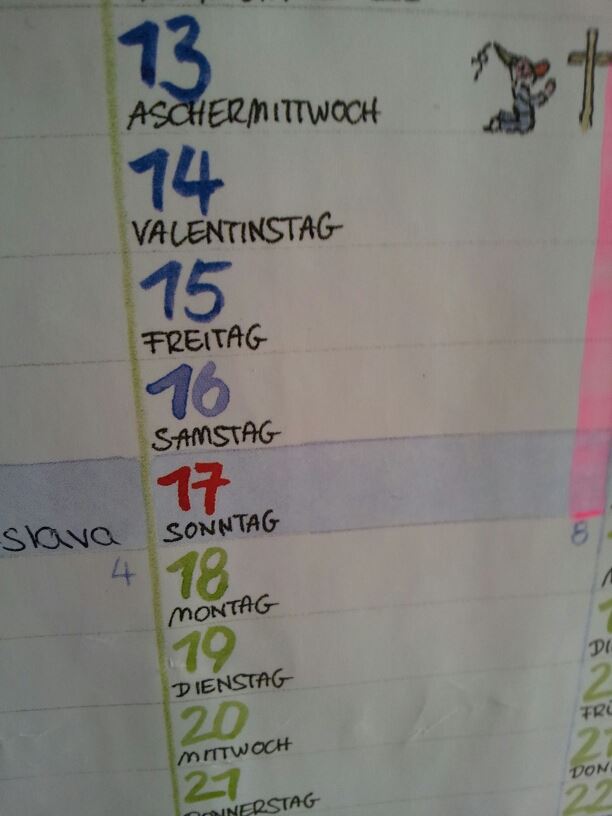 13
ASCHERMITTWOCH
14
VALENTINSTAG
15
FREITAG
16
SAMSTAG
17
slava
SONNTAG
8
4
18
MONTAG
19
DIENSTAG
20
MITTWOCH
21
DONNERSTAG
22